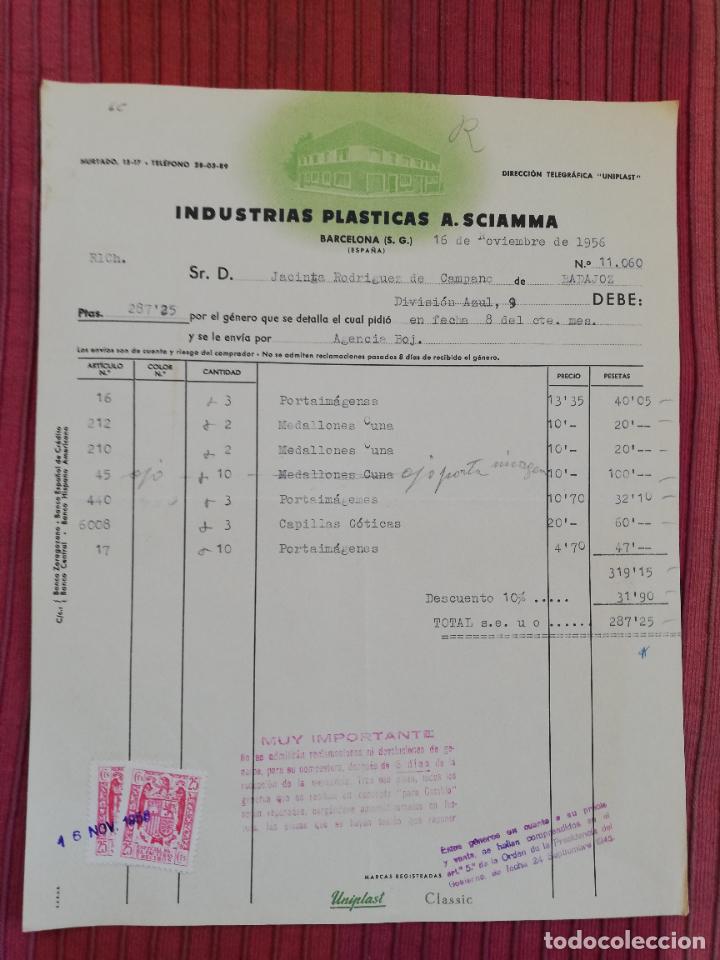 R
HURTADO, 13-17 • TELÉFONO 28-03-89
DIRECCIÓN TELEGRÁFICA "UNIPLAST"
INDUSTRIAS PLASTICAS A. SCIAMMA
BARCELONA (S. G.) 16 de Noviembre de 1956
(ESPAÑA)
R1Ch.
N.º 11.060
Sr. D. Jacinta Rodriguez de Campano de BADAJOZ
División Azul, 9 DEBE:
Ptas. 287'25 por el género que se detalla el cual pidió en fecha 8 del cte. mes.
y se le envía por Agencia Boj.
Los envíos son de cuenta y riesgo del comprador - No se admiten reclamaciones pasados 8 días de recibido el género.
ARTÍCULO N.º COLOR N.º CANTIDAD PRECIO PESETAS
16 3 Portaimágenes 13'35 40'05
212 2 Medallones Cuna 10'- 20'--
210 2 Medallones Cuna 10'- 20'--
45 ojo 10 Medallones Cuna ojo porta imagen 10'- 100'--
440 3 Portaimágenes 10'70 32'10
6008 3 Capillas Góticas 20'- 60'--
17 10 Portaimágenes 4'70 47'--
319'15
Descuento 10% ..... 31'90
TOTAL s.e. u o ...... 287'25
C/c.: Banco Zaragozano - Banco Español de Crédito
Banco Central - Banco Hispano Americano
MUY IMPORTANTE
No se admitirán reclamaciones ni devoluciones de gé-
neros, para su compostura, después de 8 días de la
recepción de la mercancía. Tras ese plazo, todos los
géneros que se reciban en concepto "para Cambio"
serán reparados, cargándose automáticamente en fac-
tura, las piezas que se hayan tenido que reponer
Estos géneros en cuanto a su precio
y venta, se hallan comprendidos en el
art.º 5.º de la Orden de la Presidencia del
Gobierno, de fecha 24 Septiembre 1945.
25 CTS
25 CTS
16 NOV. 1956
MARCAS REGISTRADAS
Uniplast Classic
todocoleccion
todocoleccion.net